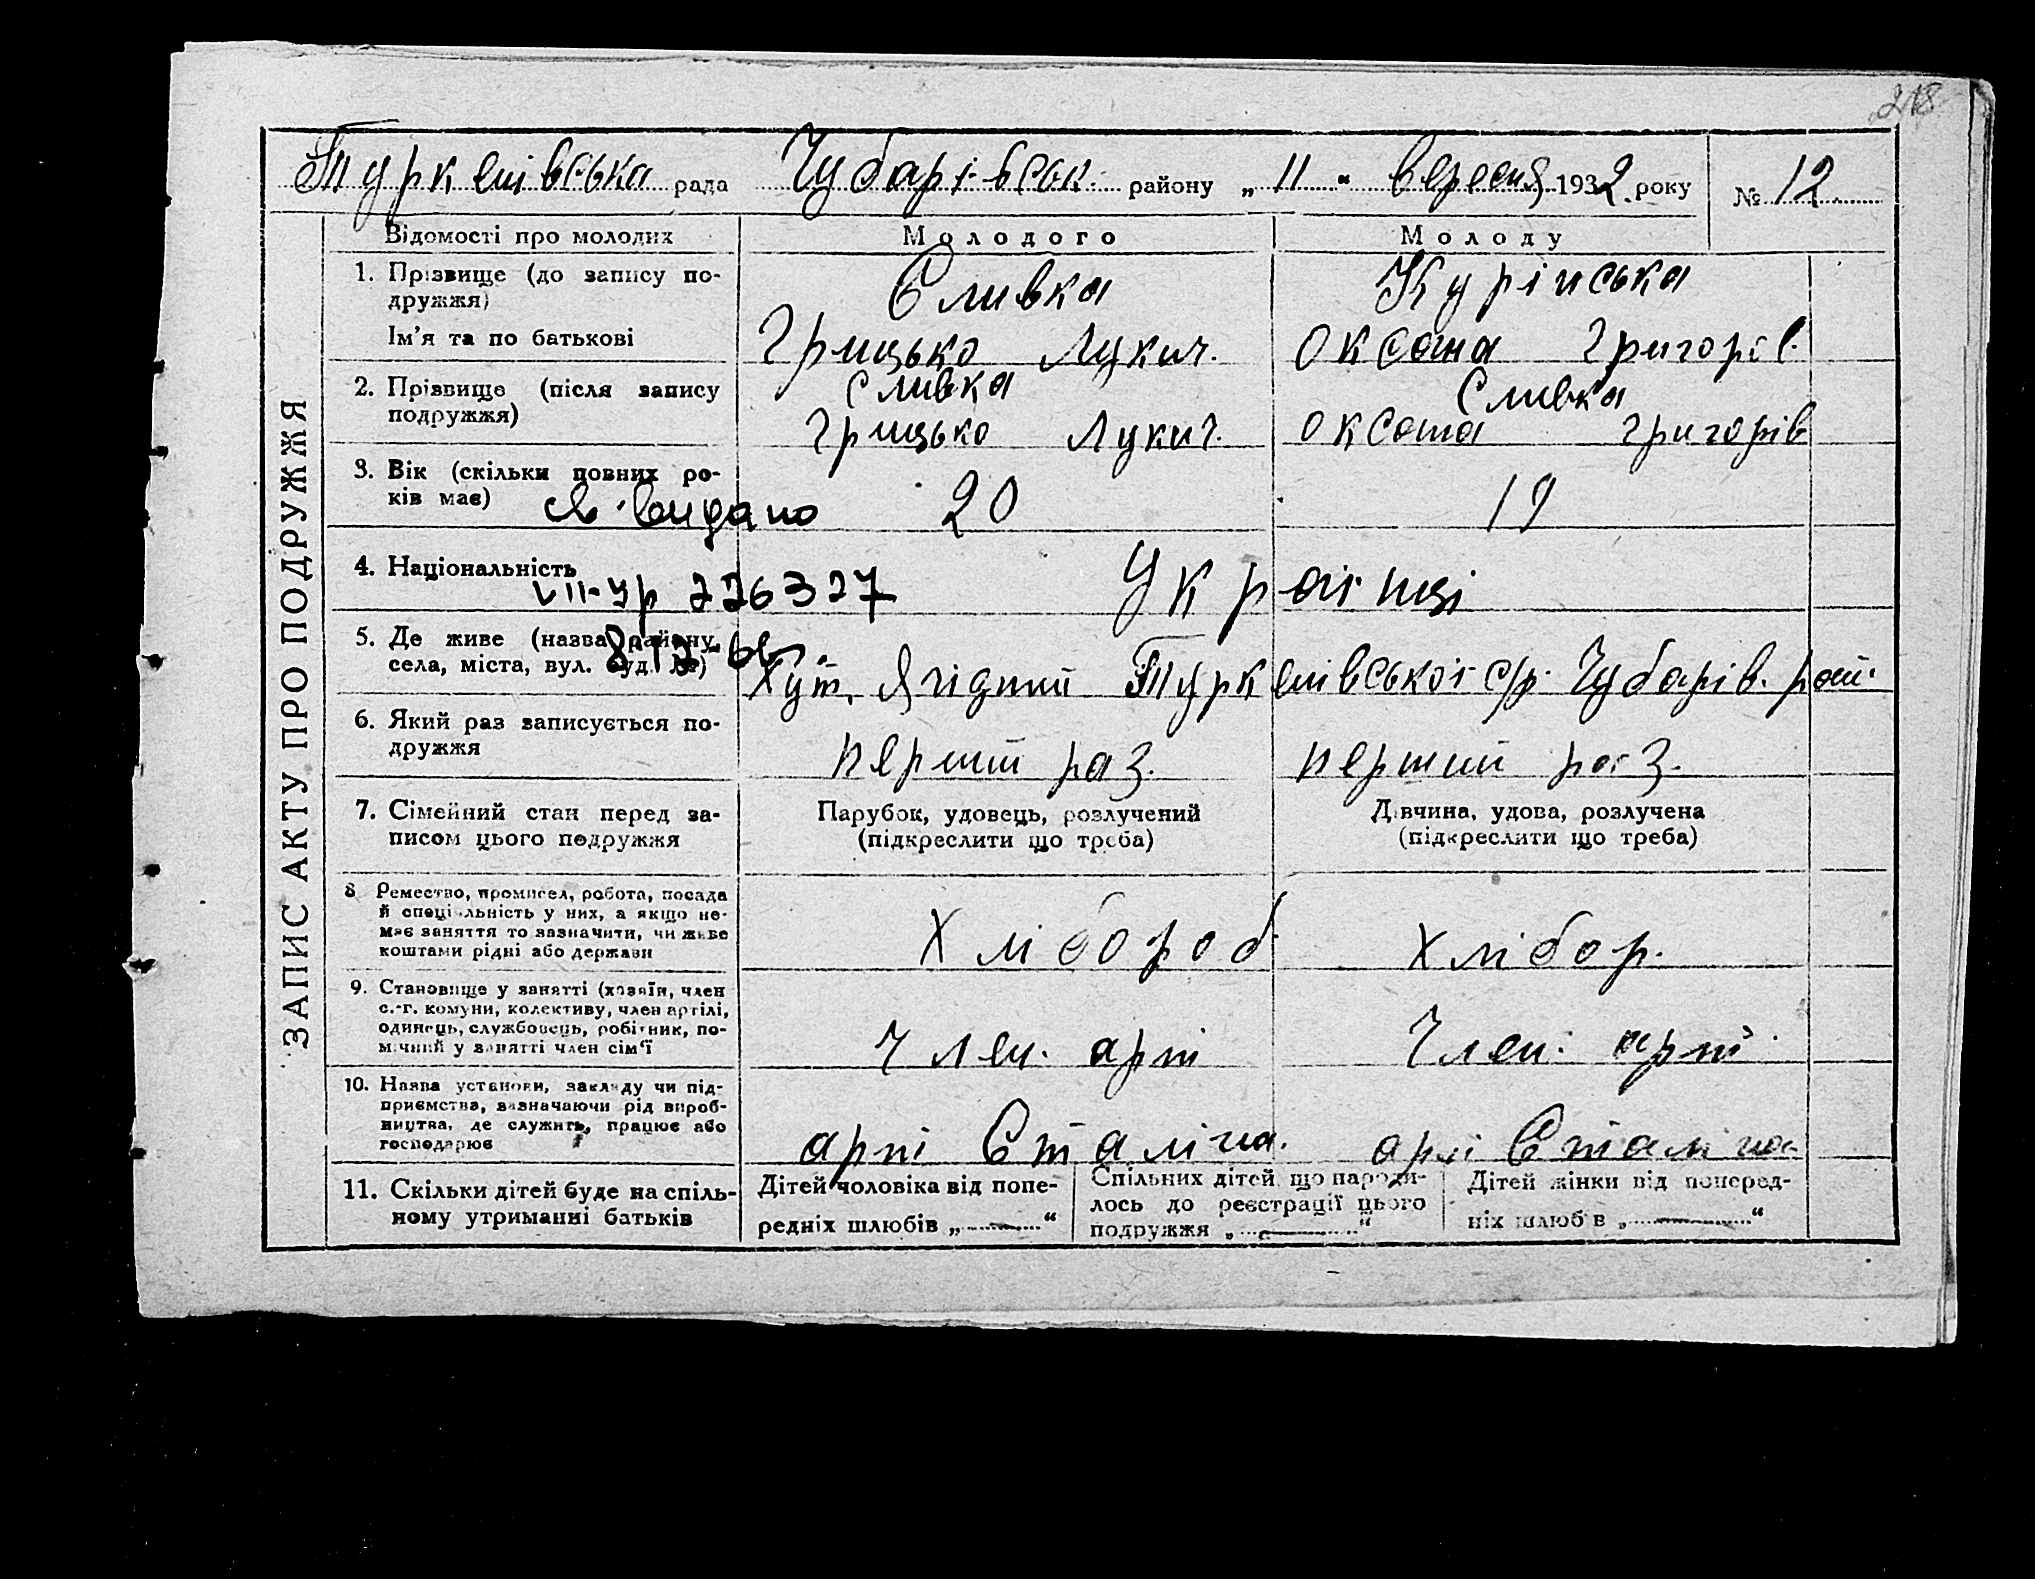 218
Туркенівська рада Чубарівськ. району „ 11 " вересня 1932. року № 12
ЗАПИС АКТУ ПРО ПОДРУЖЖЯ
Відомості про молодих Молодого Молоду
1. Прізвище (до запису по-
дружжя)
Сливка Курінська
Ім'я та по батькові Грицько Лукич. Оксана Григорів.
2. Прізвище (після запису
подружжя)
Сливка Сливка
Грицько Лукич. Оксана Григорів
3. Вік (скільки повних ро-
ків має) 20 19
св. видано
4. Національність Українці
VII-УР 226327
5. Де живе (назва району,
села, міста, вул. буд. №) Хут. Ягідний Туркенівської с/р. Чубарів. рай.
8-12-66
6. Який раз записується по-
дружжя перший раз. перший раз.
7. Сімейний стан перед за-
писом цього подружжя
Парубок, удовець, розлучений
(підкреслити що треба)
Дівчина, удова, розлучена
(підкреслити що треба)
8 Ремество, промисел, робота, посада
й спеціяльність у них, а якщо не-
має заняття то зазначити, чи живе
коштами рідні або держави
Хлібороб Хлібор.
9. Становище у занятті (хазяїн, член
с.-г. комуни, колективу, член артілі,
одинець, службовець, робітник, по-
мічний у занятті член сім'ї
Член. арт Член. арт.
10. Назва установи, закладу чи під-
приємства, зазначаючи рід вироб-
ництва, де служить, працює або
господарює
арті Сталіна. арті Сталіна
11. Скільки дітей буде на спіль-
ному утриманні батьків
Дітей чоловіка від попе-
редніх шлюбів „ — "
Спільних дітей, що народи-
лось до реєстрації цього
подружжя „ — "
Дітей жінки від поперед-
ніх шлюбів „ — "